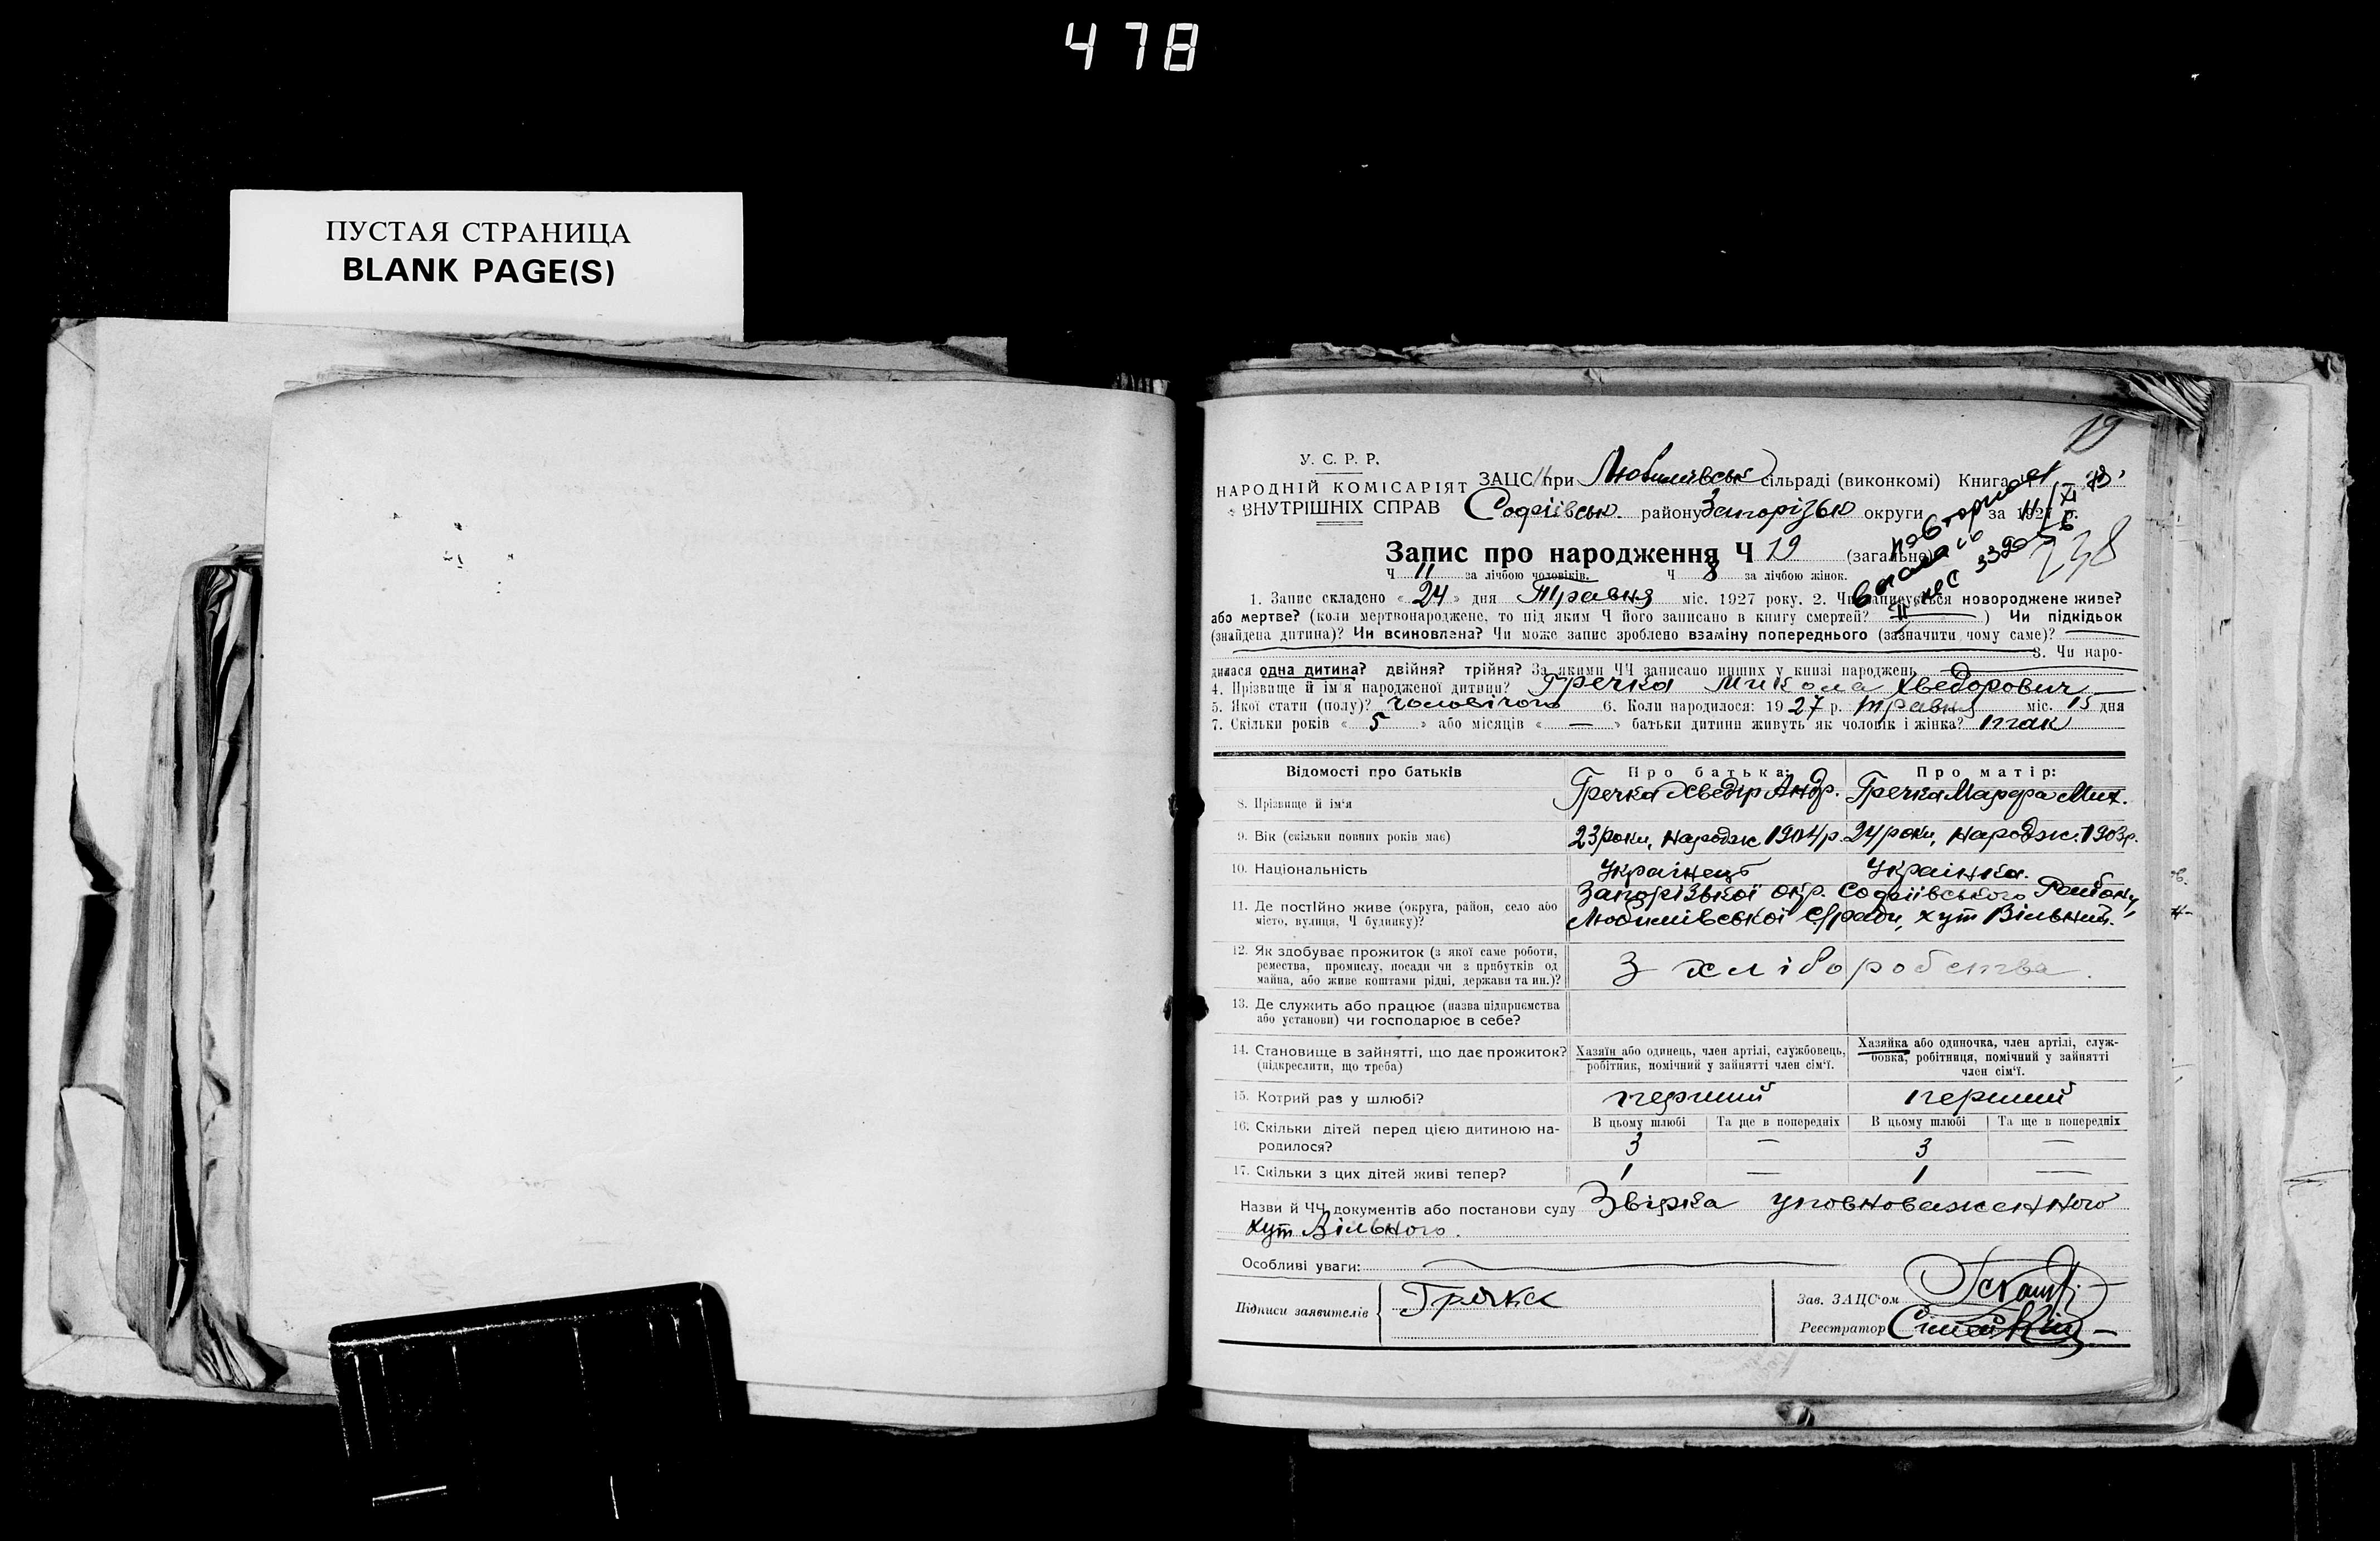 478
ПУСТАЯ СТРАНИЦА
BLANK PAGE(S)
19
У. С. Р. Р.
НАРОДНІЙ КОМІСАРІЯТ
ВНУТРІШНІХ СПРАВ
ЗАЦС при Любимівськ сільраді (виконкомі) Книга
Софіївськ. району Запорізько округи за 1927 р.
238
Запис про народження Ч 19 (загальне)
Ч 11 за лічбою чоловіків. Ч 8 за лічбою жінок.
1. Запис складено « 24 » дня Травня міс. 1927 року. 2. Чи записується новороджене живе?
або мертве? (коли мертвонароджене, то під яким Ч його записано в книгу смертей? ) Чи підкідьок
(знайдена дитина)? Чи всиновлена? Чи може запис зроблено взаміну попереднього (зазначити чому саме)?
3. Чи наро-
дилася одна дитина? двійня? трійня? За якими ЧЧ записано инших у книзі народжень
4. Прізвище й ім'я народженої дитини? Гречка Микола Хведорович
5. Якої стати (полу)? чоловічого 6. Коли народилося: 1927 р. травня міс. 15 дня
7. Скільки років « 5 » або місяців « — » батьки дитини живуть як чоловік і жінка? так
Відомості про батьків Про батька: Про матір:
8. Прізвище й ім'я Гречка Хведір Андр. Гречка Марфа Мих.
9. Вік (скільки повних років має) 23 роки, народж 1904 р. 24 роки, народж. 1903 р.
10. Національність Українець Українка.
11. Де постійно живе (округа, район, село або місто, вулиця, Ч будинку)?
Запорізької окр. Софіївського Району,
Любимівської С/ради, хут Вільний.
12. Як здобуває прожиток (з якої саме роботи,
ремества, промислу, посади чи з прибутків од
майна, або живе коштами рідні, держави та ин.)?
З хліборобства.
13. Де служить або працює (назва підприємства
або установи) чи господарює в себе?
14. Становище в зайнятті, що дає прожиток?
(підкреслити, що треба)
Хазяїн або одинець, член артілі, службовець,
робітник, помічний у зайнятті член сім'ї.
Хазяйка або одиночка, член артілі, служ-
бовка, робітниця, помічний у зайнятті
член сім'ї.
15. Котрий раз у шлюбі? перший перший
16. Скільки дітей перед цією дитиною на-
родилося?
В цьому шлюбі Та ще в попередніх В цьому шлюбі Та ще в попередніх
3 — 3 —
17. Скільки з цих дітей живі тепер? 1 — 1 —
Назви й ЧЧ документів або постанови суду Звірка уповноваженного
хут Вільного.
Особливі уваги:
Підписи заявителів Гречка
Зав. ЗАЦС'ом
Реєстратор